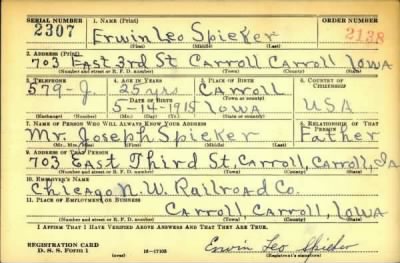 SERIAL NUMBER 1. NAME (Print) ORDER NUMBER
2307 Erwin Leo Spieker 2138
(First) (Middle) (Last)
2. ADDRESS (Print)
703 East 3rd St Carroll Carroll Iowa
(Number and street or R. F. D. number) (Town) (County) (State)
3. TELEPHONE 4. AGE IN YEARS 5. PLACE OF BIRTH 6. COUNTRY OF CITIZENSHIP
579-J. 25 yrs Carroll
DATE OF BIRTH (Town or county)
5-14-1915 Iowa USA
(Exchange) (Number) (Mo.) (Day) (Yr.) (State or country)
7. NAME OF PERSON WHO WILL ALWAYS KNOW YOUR ADDRESS 8. RELATIONSHIP OF THAT PERSON
Mr. Joseph Spicker Father
(Mr., Mrs., Miss) (First) (Middle) (Last)
9. ADDRESS OF THAT PERSON
703 East Third St. Carroll, Carroll, Ia
(Number and street or R. F. D. number) (Town) (County) (State)
10. EMPLOYER'S NAME
Chicago N. W. Railroad Co.
11. PLACE OF EMPLOYMENT OR BUSINESS
Carroll, Carroll, Iowa
(Number and street or R. F. D. number) (Town) (County) (State)
I AFFIRM THAT I HAVE VERIFIED ABOVE ANSWERS AND THAT THEY ARE TRUE.
REGISTRATION CARD
D. S. S. Form 1 16-17105 Erwin Leo Spieker
(Registrant's signature)